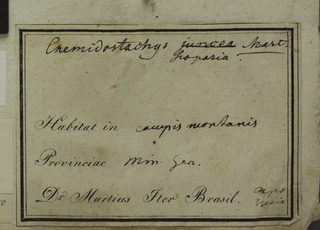 Cnemidostachys juncea Mart.
scoparia.
Habitat in campis montanis
Provinciae Min Gen.
Dr Martius Iter Brasil.